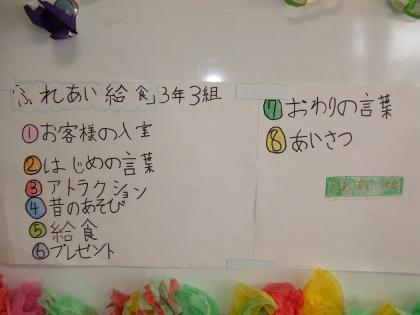 「ふれあい給食」3年3組
①お客様の入室
②はじめの言葉
③アトラクション
④昔のあそび
⑤給食
⑥プレゼント
⑦おわりの言葉
⑧あいさつ